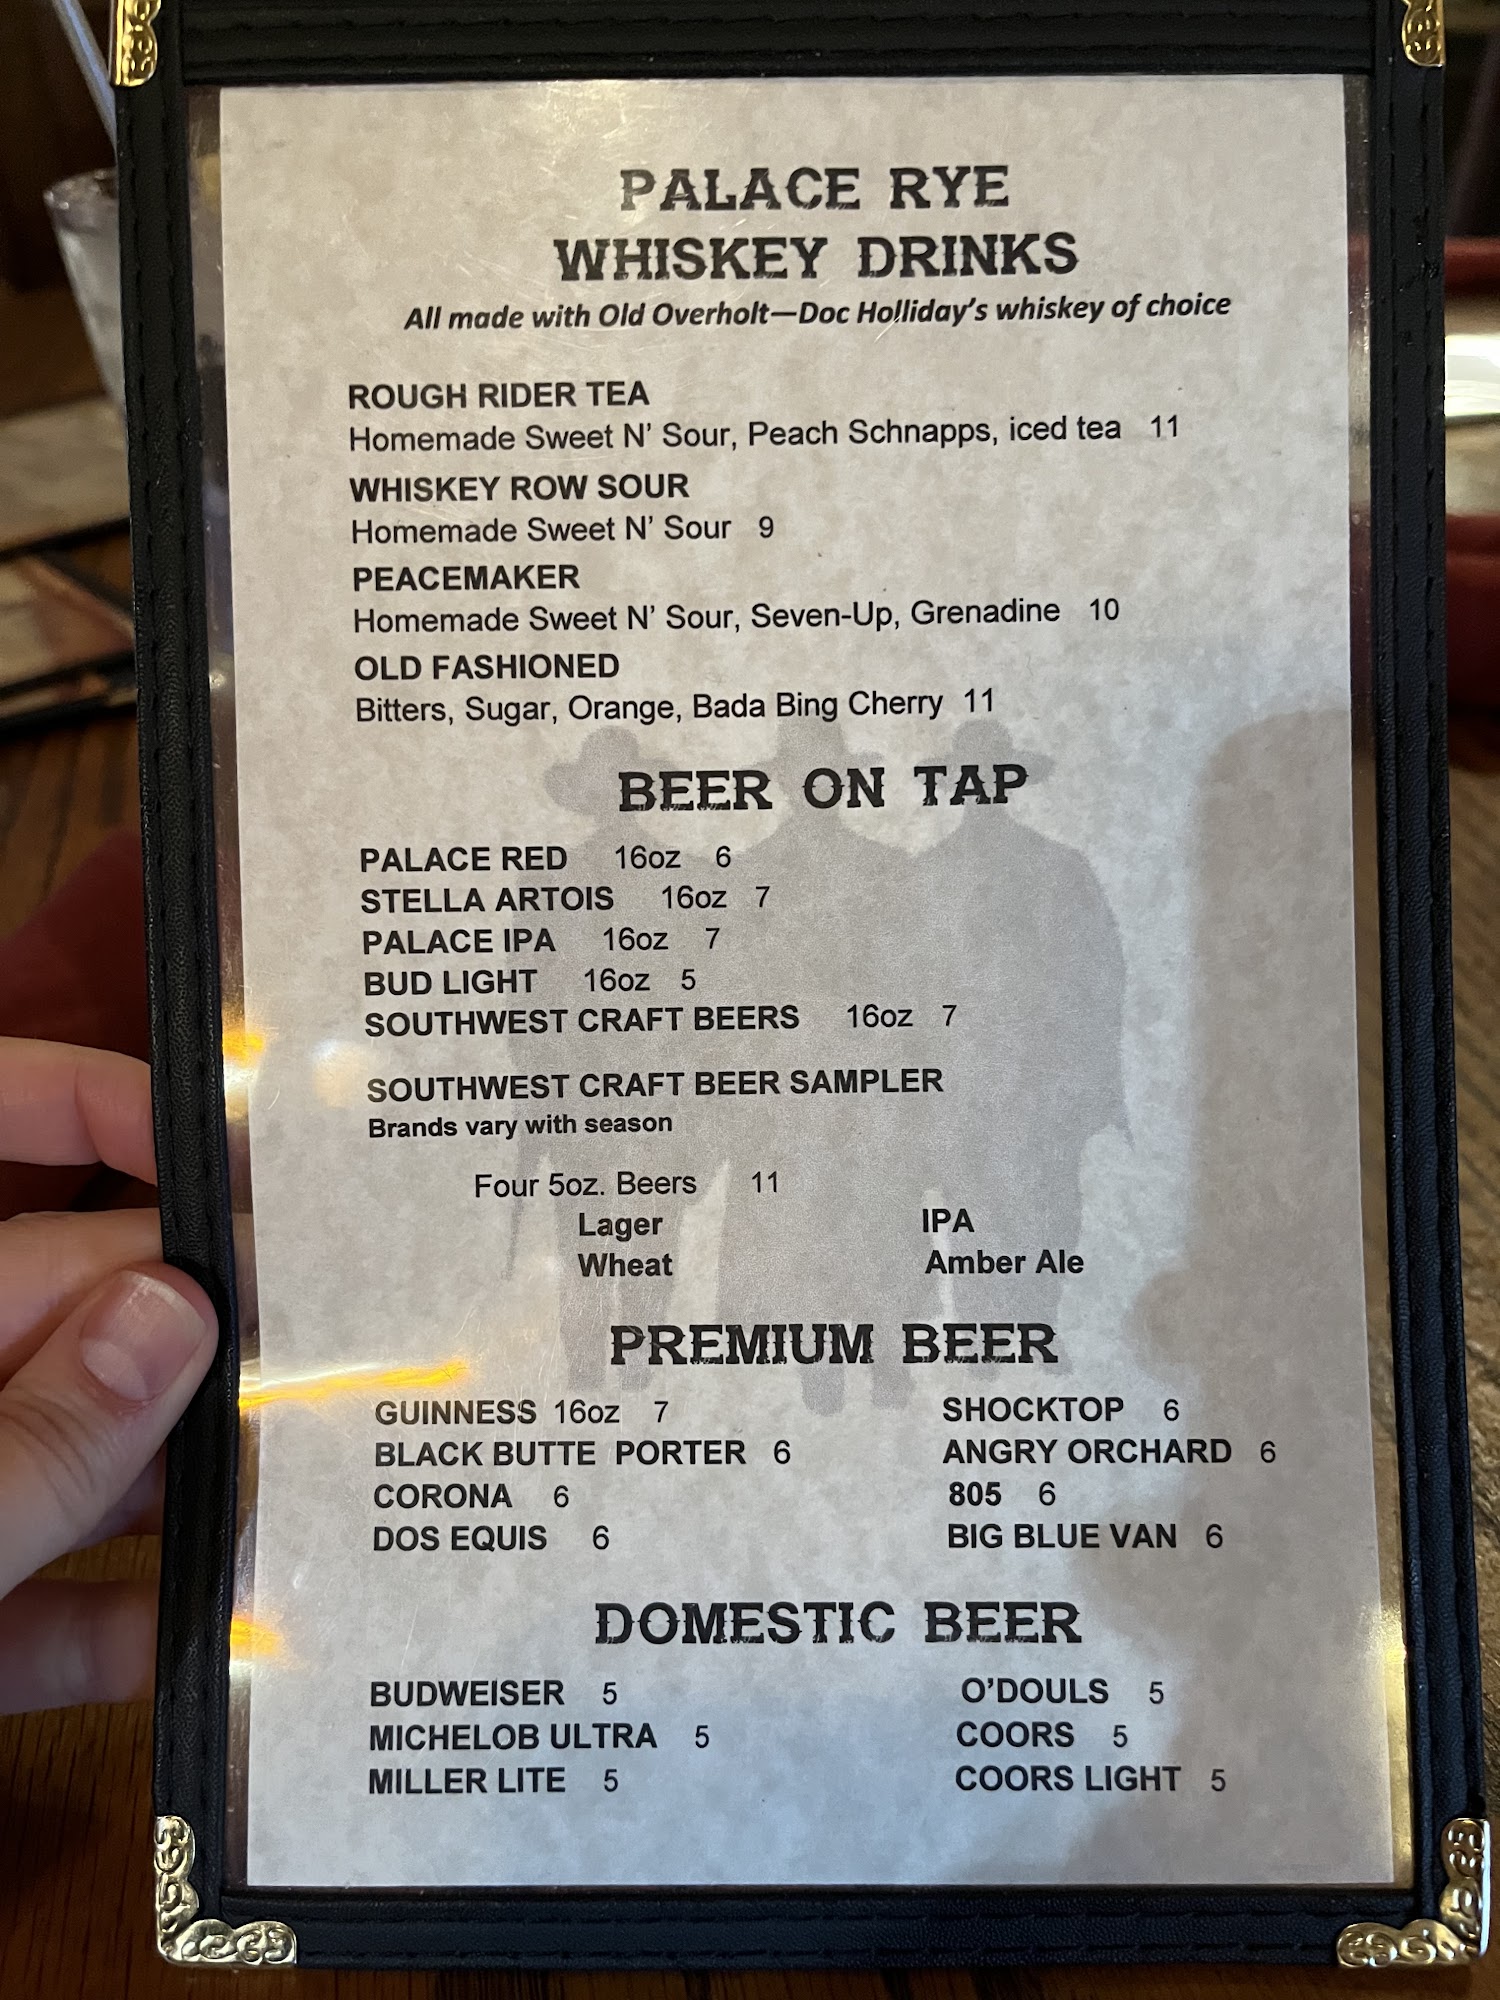 PALACE RYE
WHISKEY DRINKS
All made with Old Overholt—Doc Holliday's whiskey of choice
ROUGH RIDER TEA
Homemade Sweet N' Sour, Peach Schnapps, iced tea 11
WHISKEY ROW SOUR
Homemade Sweet N' Sour 9
PEACEMAKER
Homemade Sweet N' Sour, Seven-Up, Grenadine 10
OLD FASHIONED
Bitters, Sugar, Orange, Bada Bing Cherry 11
BEER ON TAP
PALACE RED 16oz 6
STELLA ARTOIS 16oz 7
PALACE IPA 16oz 7
BUD LIGHT 16oz 5
SOUTHWEST CRAFT BEERS 16oz 7
SOUTHWEST CRAFT BEER SAMPLER
Brands vary with season
Four 5oz. Beers 11
Lager IPA
Wheat Amber Ale
PREMIUM BEER
GUINNESS 16oz 7 SHOCKTOP 6
BLACK BUTTE PORTER 6 ANGRY ORCHARD 6
CORONA 6 805 6
DOS EQUIS 6 BIG BLUE VAN 6
DOMESTIC BEER
BUDWEISER 5 O'DOULS 5
MICHELOB ULTRA 5 COORS 5
MILLER LITE 5 COORS LIGHT 5